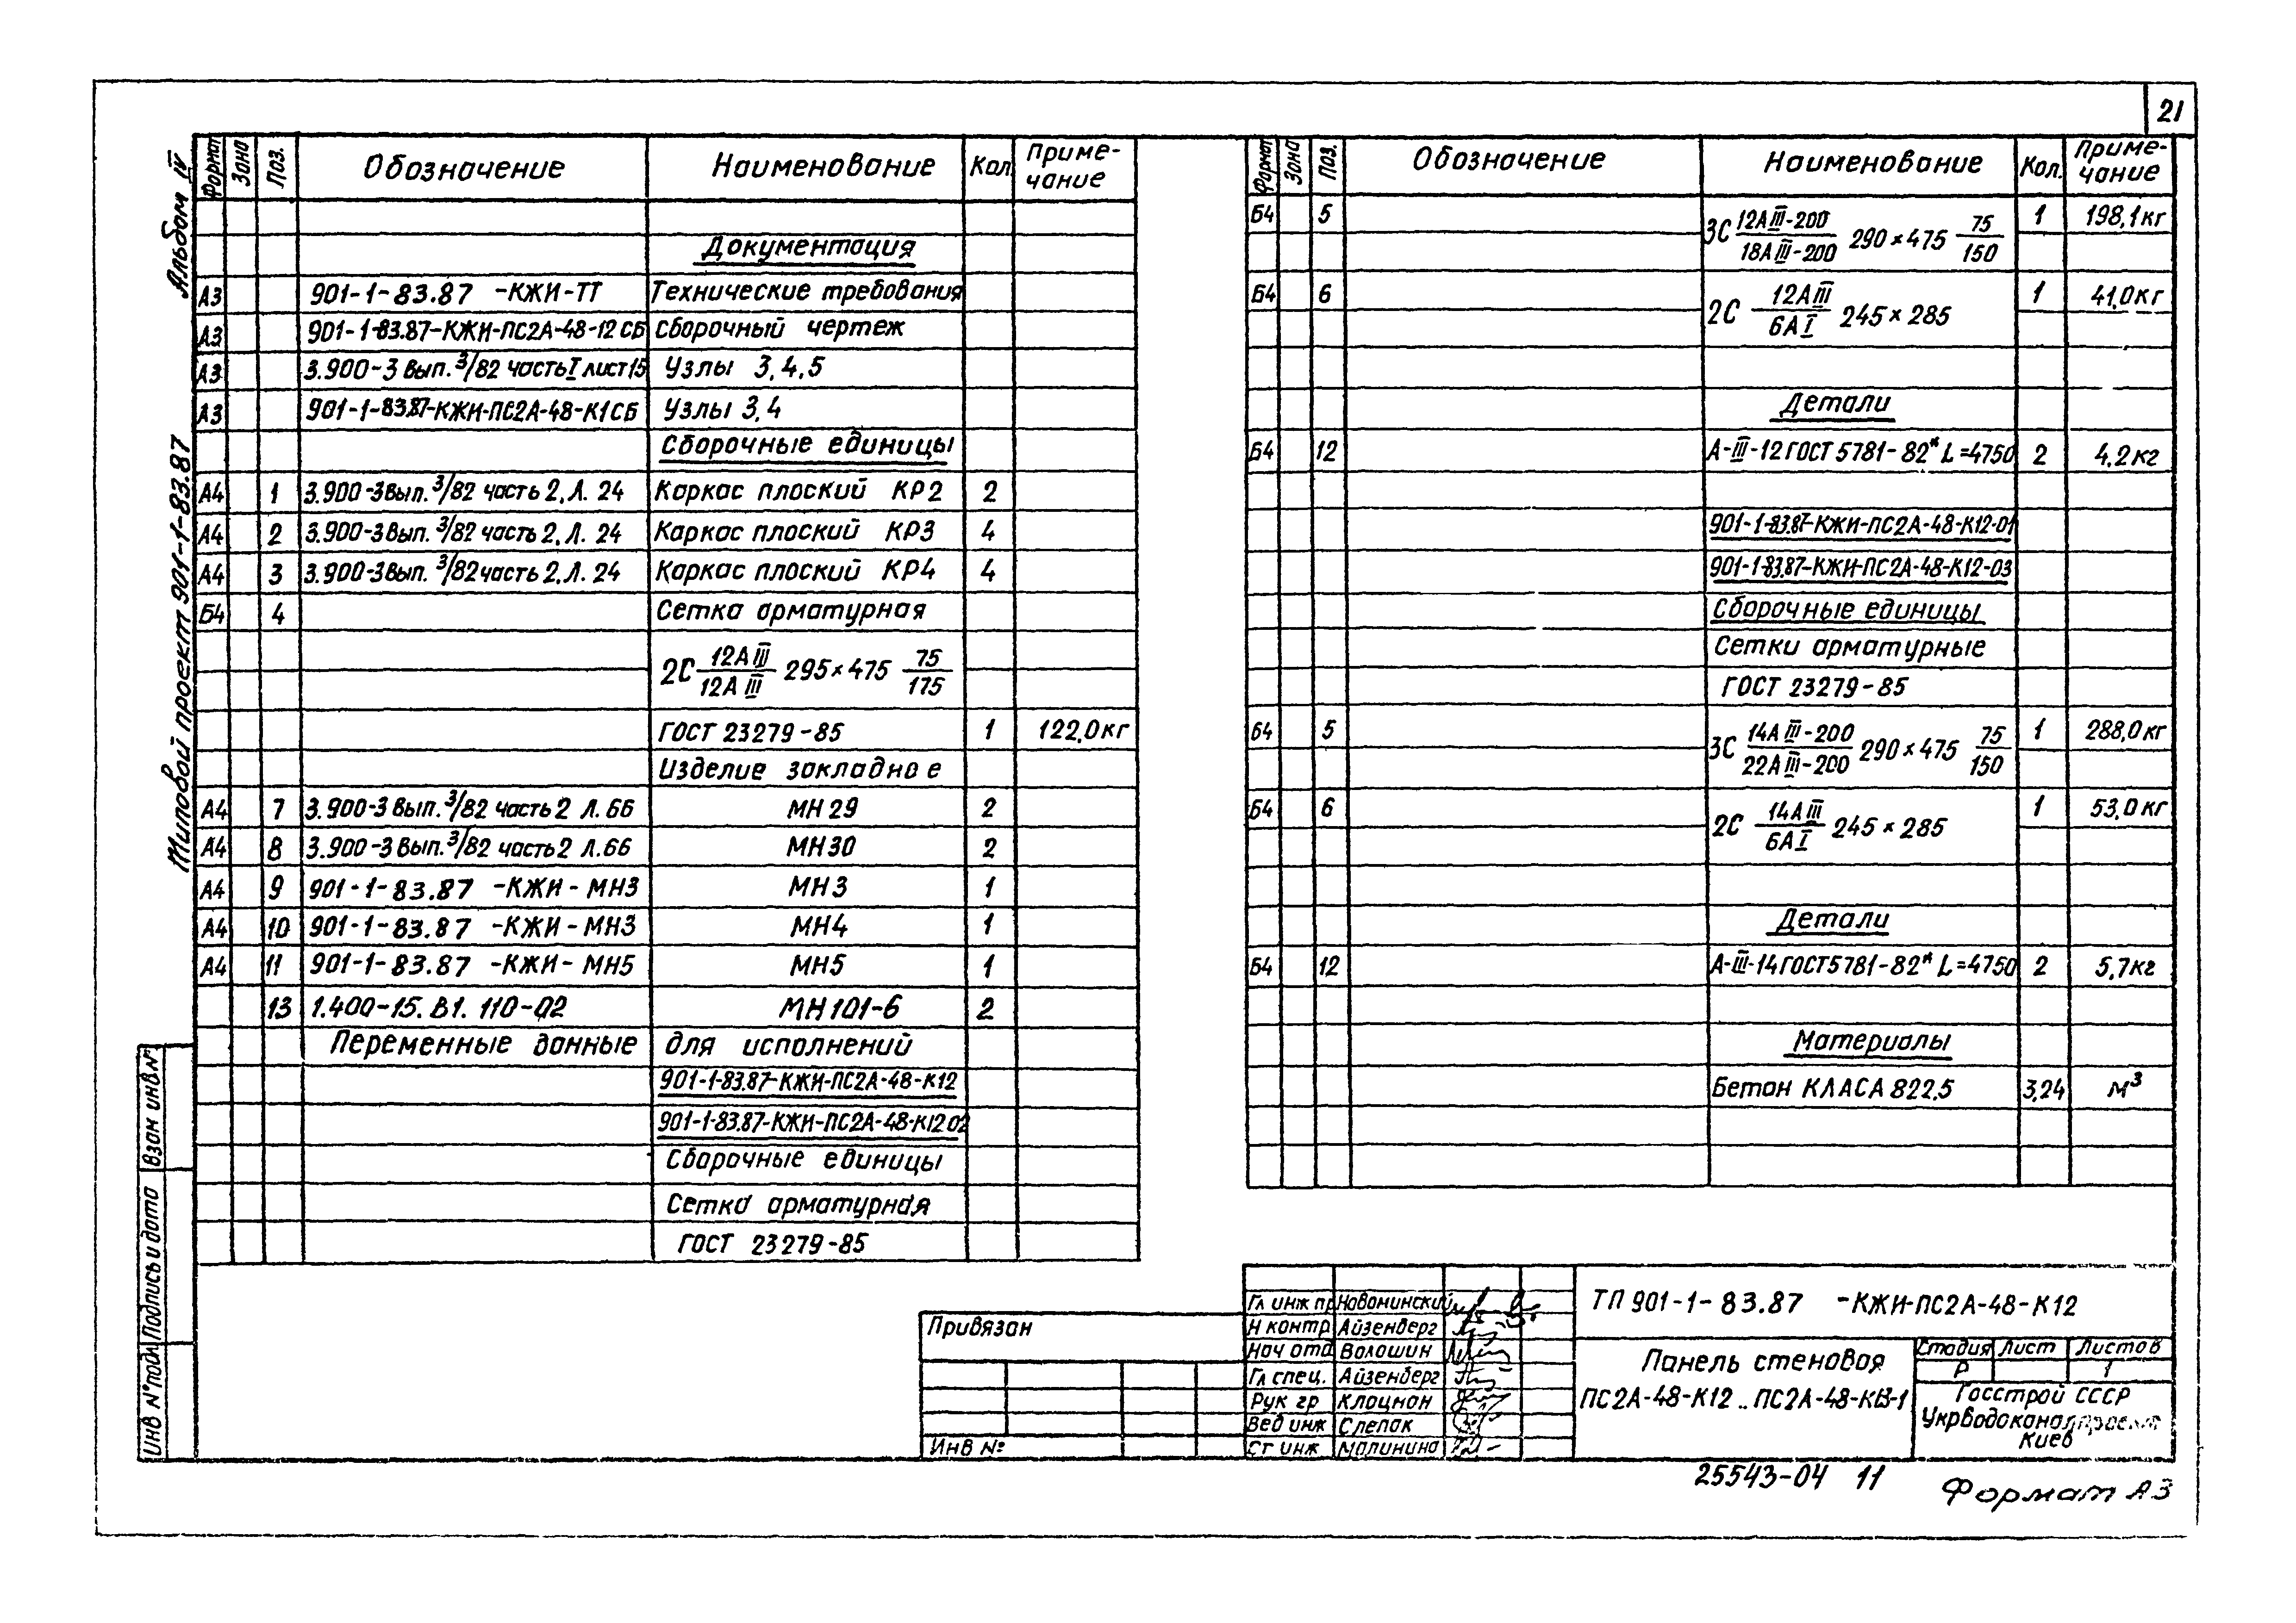 21
Альбом IV
Типовой проект 901-1-83.87
Формат Зона Поз. Обозначение Наименование Кол. Приме-чание
Документация
А3 901-1-83.87 -КЖИ-ТТ Технические требования
А3 901-1-83.87-КЖИ-ПС2А-48-12 СБ Сборочный чертеж
А3 3.900-3 Вып. 3/82 часть I лист 15 Узлы 3,4,5
А3 901-1-83.87-КЖИ-ПС2А-48-К1СБ Узлы 3,4
Сборочные единицы
А4 1 3.900-3 Вып. 3/82 часть 2. Л. 24 Каркас плоский КР2 2
А4 2 3.900-3 Вып. 3/82 часть 2. Л. 24 Каркас плоский КР3 4
А4 3 3.900-3 Вып. 3/82 часть 2. Л. 24 Каркас плоский КР4 4
Б4 4 Сетка арматурная
2С 12АIII/12АIII 295×475 75/175
ГОСТ 23279-85 1 122,0кг
Изделие закладное
А4 7 3.900-3 Вып. 3/82 часть 2 Л. 66 МН29 2
А4 8 3.900-3 Вып. 3/82 часть 2 Л.66 МН30 2
А4 9 901-1-83.87 -КЖИ-МН3 МН3 1
А4 10 901-1-83.87 -КЖИ-МН3 МН4 1
А4 11 901-1-83.87 -КЖИ-МН5 МН5 1
13 1.400-15. В1. 110-02 МН101-6 2
Переменные данные для исполнений
901-1-83.87-КЖИ-ПС2А-48-К12
901-1-83.87-КЖИ-ПС2А-48-К12 02
Сборочные единицы
Сетка арматурная
ГОСТ 23279-85
Формат Зона Поз. Обозначение Наименование Кол. Приме-чание
Б4 5 3С 12АIII-200/18АIII-200 290×475 75/150 1 198,1кг
Б4 6 2С 12АIII/6АI 245×285 1 41,0кг
Детали
Б4 12 А-III-12 ГОСТ 5781-82* L=4750 2 4,2кг
901-1-83.87-КЖИ-ПС2А-48-К12-01
901-1-83.87-КЖИ-ПС2А-48-К12-03
Сборочные единицы
Сетки арматурные
ГОСТ 23279-85
Б4 5 3С 14АIII-200/22АIII-200 290×475 75/150 1 288,0кг
Б4 6 2С 14АIII/6АI 245×285 1 53,0кг
Детали
Б4 12 А-III-14 ГОСТ 5781-82* L=4750 2 5,7кг
Материалы
Бетон КЛАСА В22,5 3,24 м3
Взам инв №
Подпись и дата
Инв № подл
Привязан
Инв №
Гл инж пр Новоминский
Н контр Айзенберг
Нач отд Волошин
Гл спец. Айзенберг
Рук гр Клоцман
Вед инж Слепак
Ст инж Малинина
ТП 901-1-83.87 -КЖИ-ПС2А-48-К12
Панель стеновая
ПС2А-48-К12..ПС2А-48-К13-1
Стадия Лист Листов
Р 1
Госстрой СССР
Укрводоканалпроект
Киев
25543-04 11
Формат А3